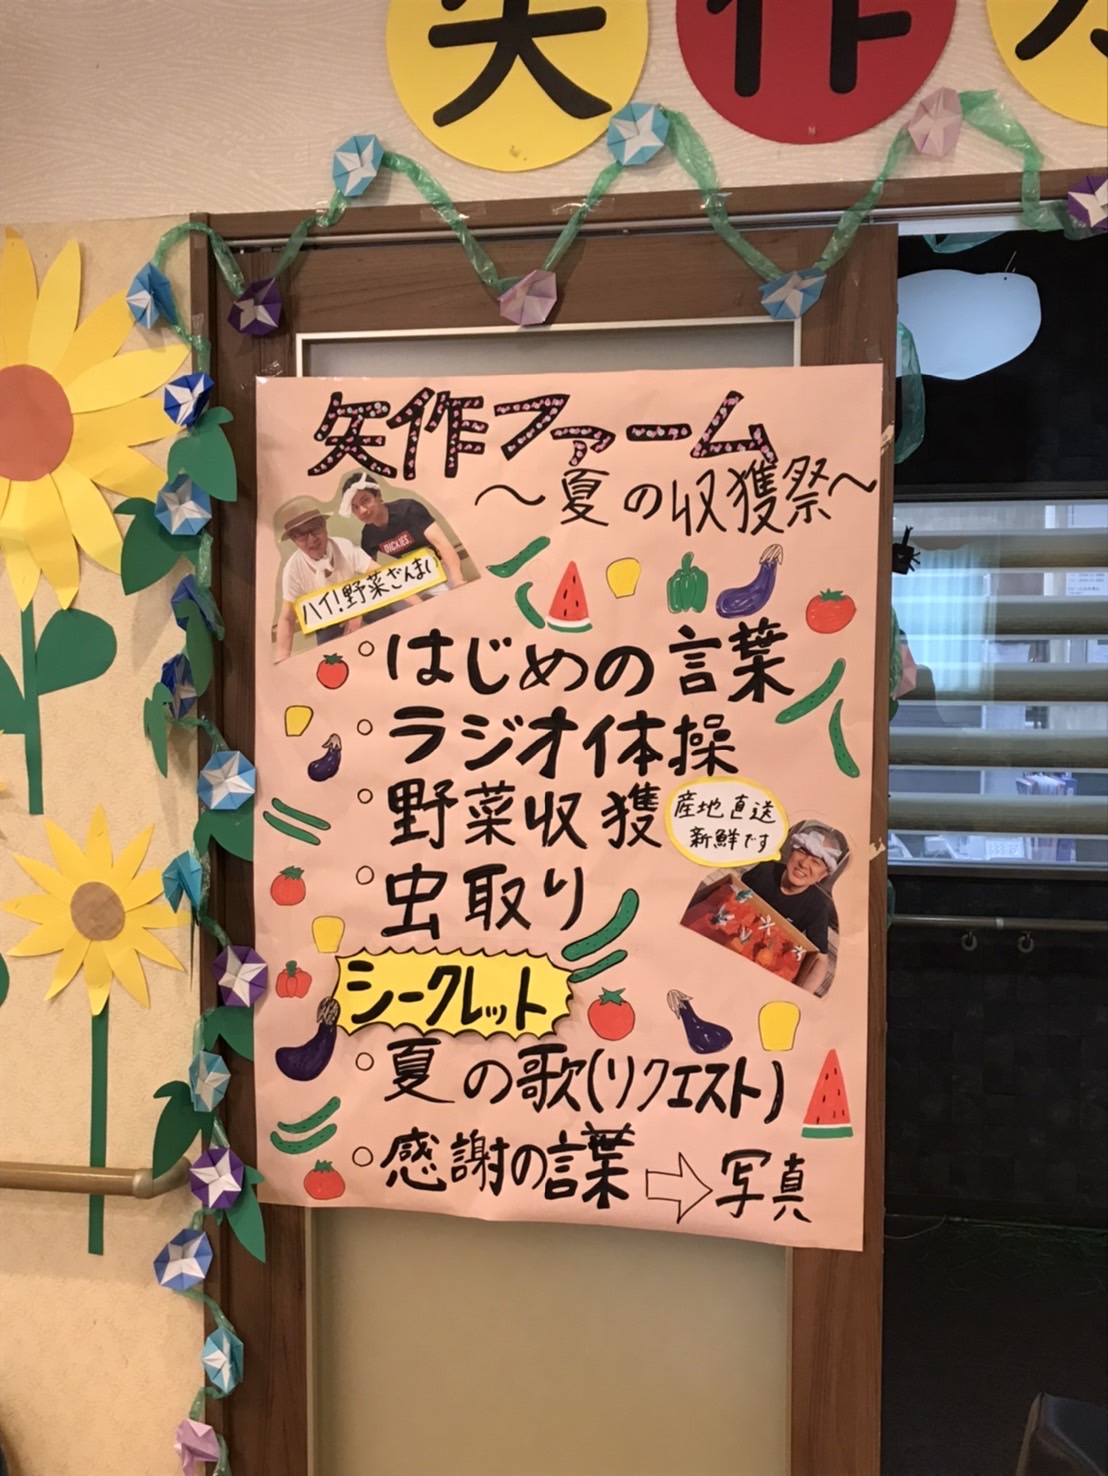 矢作
矢作ファーム
〜夏の収穫祭〜
DICKIES
ハイ!野菜ざんまい
○はじめの言葉
○ラジオ体操
○野菜収獲
産地直送
新鮮です
○虫取り
シークレット
○夏の歌(リクエスト)
○感謝の言葉⇨写真